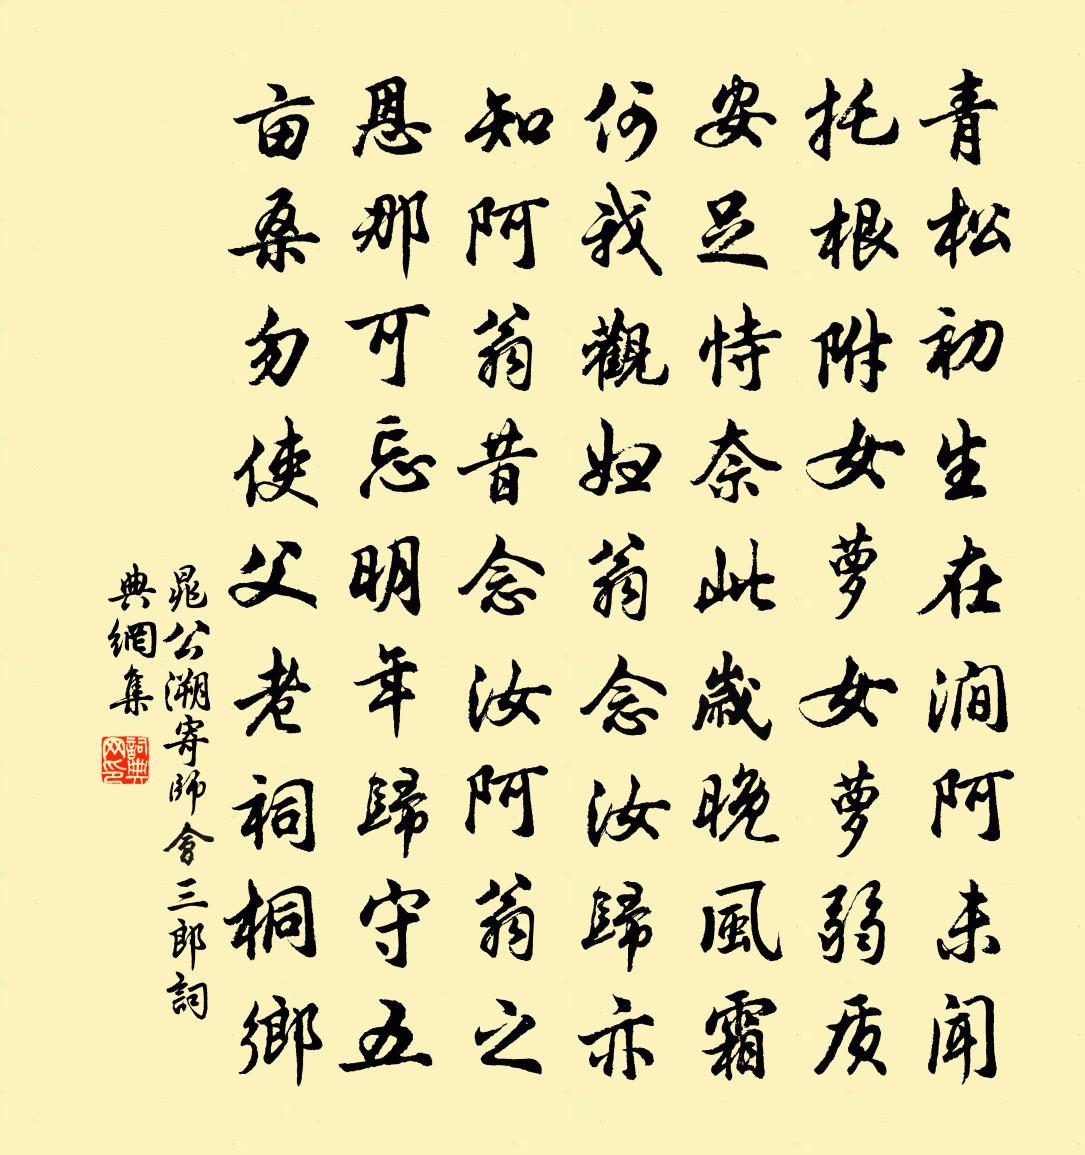 青松初生在澗阿未闻
托根附女萝女萝弱质
安足恃奈此歳晚風霜
何我觀妲翁念汝歸亦
知阿翁昔念汝阿翁之
恩那可忘明年歸守五
亩桑勿使父老祠桐鄉
晁公溯寄師會三郎詞
典網集
詞典网印